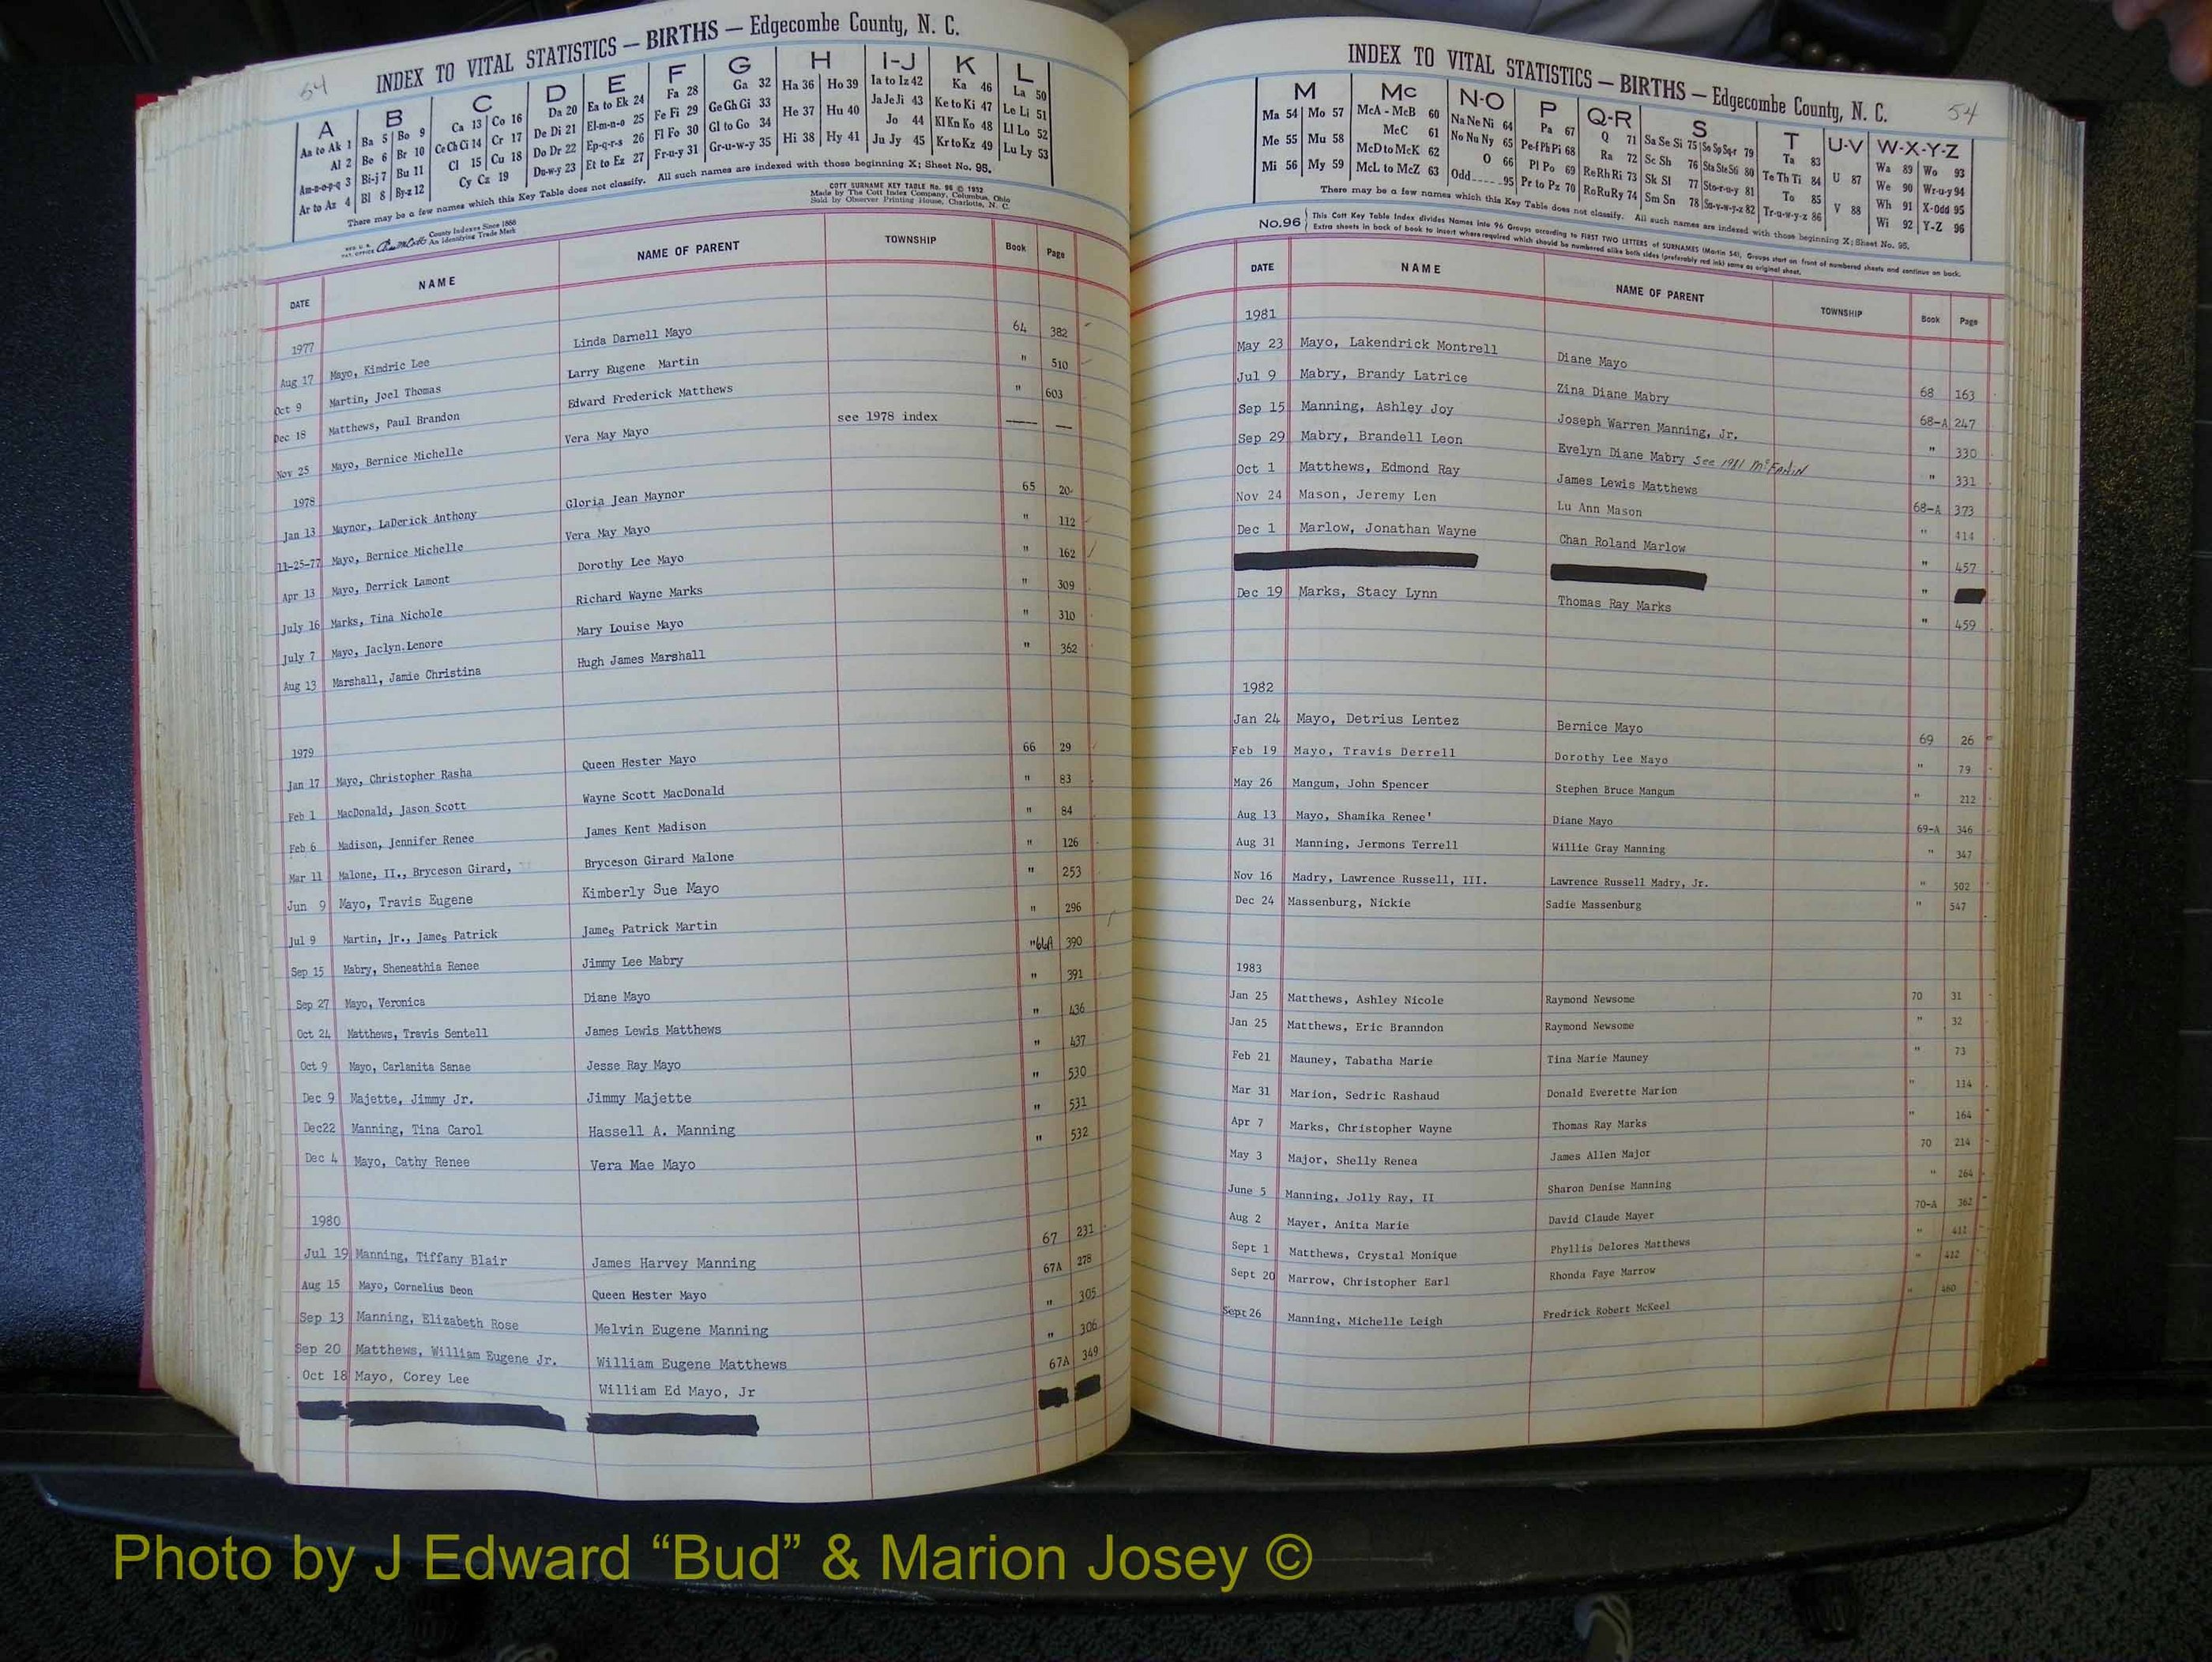 54
INDEX TO VITAL STATISTICS — BIRTHS — Edgecombe County, N. C.
A B C D E F G H I-J K L
Aa to Ak 1 Ba 5 Bo 9 Ca 13 Co 16 Da 20 Ea to Ek 24 Fa 28 Ga 32 Ha 36 Ho 39 Ia to Iz 42 Ka 46 La 50
Al 2 Be 6 Br 10 Ce Ch Ci 14 Cr 17 De Di 21 El-m-n-o 25 Fe Fi 29 Ge Gh Gi 33 He 37 Hu 40 Ja Je Ji 43 Ke to Ki 47 Le Li 51
Am-n-o-p-q 3 Bi-j 7 Bu 11 Cl 15 Cu 18 Do Dr 22 Ep-q-r-s 26 Fl Fo 30 Gl to Go 34 Hi 38 Hy 41 Jo 44 Kl Kn Ko 48 Ll Lo 52
Ar to Az 4 Bl 8 By-z 12 Cy Cz 19 Du-w-y 23 Et to Ez 27 Fr-u-y 31 Gr-u-w-y 35 Ju Jy 45 Kr to Kz 49 Lu Ly 53
There may be a few names which this Key Table does not classify. All such names are indexed with those beginning X; Sheet No. 95.
County Indexes Since 1888
An Identifying Trade Mark
COTT SURNAME KEY TABLE No. 96 © 1932
Made by The Cott Index Company, Columbus, Ohio
Sold by Observer Printing House, Charlotte, N. C.
DATE NAME NAME OF PARENT TOWNSHIP Book Page
1977
Aug 17 Mayo, Kimdric Lee Linda Darnell Mayo 64 382
Oct 9 Martin, Joel Thomas Larry Eugene Martin " 510
Dec 18 Matthews, Paul Brandon Edward Frederick Matthews " 603
Nov 25 Mayo, Bernice Michelle Vera May Mayo see 1978 index
1978
Jan 13 Maynor, LaDerick Anthony Gloria Jean Maynor 65 20
11-25-77 Mayo, Bernice Michelle Vera May Mayo " 112
Apr 13 Mayo, Derrick Lamont Dorothy Lee Mayo " 162
July 16 Marks, Tina Nichole Richard Wayne Marks " 309
July 7 Mayo, Jaclyn.Lenore Mary Louise Mayo " 310
Aug 13 Marshall, Jamie Christina Hugh James Marshall " 362
1979
Jan 17 Mayo, Christopher Rasha Queen Hester Mayo 66 29
Feb 1 MacDonald, Jason Scott Wayne Scott MacDonald " 83
Feb 6 Madison, Jennifer Renee James Kent Madison " 84
Mar 11 Malone, II., Bryceson Girard, Bryceson Girard Malone " 126
Jun 9 Mayo, Travis Eugene Kimberly Sue Mayo " 253
Jul 9 Martin, Jr., James Patrick James Patrick Martin " 296
Sep 15 Mabry, Sheneathia Renee Jimmy Lee Mabry "66A 390
Sep 27 Mayo, Veronica Diane Mayo " 391
Oct 24 Matthews, Travis Sentell James Lewis Matthews " 436
Oct 9 Mayo, Carlanita Sanae Jesse Ray Mayo " 437
Dec 9 Majette, Jimmy Jr. Jimmy Majette " 530
Dec22 Manning, Tina Carol Hassell A. Manning " 531
Dec 4 Mayo, Cathy Renee Vera Mae Mayo " 532
1980
Jul 19 Manning, Tiffany Blair James Harvey Manning 67 231
Aug 15 Mayo, Cornelius Deon Queen Hester Mayo 67A 278
Sep 13 Manning, Elizabeth Rose Melvin Eugene Manning " 305
Sep 20 Matthews, William Eugene Jr. William Eugene Matthews " 306
Oct 18 Mayo, Corey Lee William Ed Mayo, Jr 67A 349
INDEX TO VITAL STATISTICS — BIRTHS — Edgecombe County, N. C. 54
M Mc N-O P Q-R S T U-V W-X-Y-Z
Ma 54 Mo 57 McA - McB 60 Na Ne Ni 64 Pa 67 Q 71 Sa Se Si 75 So Sp Sq-r 79 Ta 83 U 87 Wa 89 Wo 93
Me 55 Mu 58 McC 61 No Nu Ny 65 Pe-f Ph Pi 68 Ra 72 Sc Sh 76 Sta Ste Sti 80 Te Th Ti 84 V 88 We 90 Wr-u-y 94
Mi 56 My 59 McD to McK 62 O 66 Pl Po 69 Re Rh Ri 73 Sk Sl 77 Sto-r-u-y 81 To 85 Wh 91 X-Odd 95
McL to McZ 63 Odd 95 Pr to Pz 70 Ro Ru Ry 74 Sm Sn 78 Su-v-w-y-z 82 Tr-u-w-y-z 86 Wi 92 Y-Z 96
There may be a few names which this Key Table does not classify. All such names are indexed with those beginning X; Sheet No. 95.
No.96 This Cott Key Table Index divides Names into 96 Groups according to FIRST TWO LETTERS of SURNAMES (Martin 54). Groups start on front of numbered sheets and continue on back.
Extra sheets in back of book to insert where required which should be numbered alike both sides (preferably red ink) same as original sheet.
DATE NAME NAME OF PARENT TOWNSHIP Book Page
1981
May 23 Mayo, Lakendrick Montrell Diane Mayo 68 163
Jul 9 Mabry, Brandy Latrice Zina Diane Mabry 68-A 247
Sep 15 Manning, Ashley Joy Joseph Warren Manning, Jr. " 330
Sep 29 Mabry, Brandell Leon Evelyn Diane Mabry See 1981 " 331
Oct 1 Matthews, Edmond Ray James Lewis Matthews 68-A 373
Nov 24 Mason, Jeremy Len Lu Ann Mason " 414
Dec 1 Marlow, Jonathan Wayne Chan Roland Marlow " 457
"
Dec 19 Marks, Stacy Lynn Thomas Ray Marks " 459
1982
Jan 24 Mayo, Detrius Lentez Bernice Mayo 69 26
Feb 19 Mayo, Travis Derrell Dorothy Lee Mayo " 79
May 26 Mangum, John Spencer Stephen Bruce Mangum " 212
Aug 13 Mayo, Shamika Renee' Diane Mayo 69-A 346
Aug 31 Manning, Jermons Terrell Willie Gray Manning " 347
Nov 16 Madry, Lawrence Russell, III. Lawrence Russell Madry, Jr. " 502
Dec 24 Massenburg, Nickie Sadie Massenburg " 547
1983
Jan 25 Matthews, Ashley Nicole Raymond Newsome 70 31
Jan 25 Matthews, Eric Branndon Raymond Newsome " 32
Feb 21 Mauney, Tabatha Marie Tina Marie Mauney " 73
Mar 31 Marion, Sedric Rashaud Donald Everette Marion " 114
Apr 7 Marks, Christopher Wayne Thomas Ray Marks " 164
May 3 Major, Shelly Renea James Allen Major 70 214
June 5 Manning, Jolly Ray, II Sharon Denise Manning " 264
Aug 2 Mayer, Anita Marie David Claude Mayer 70-A 362
Sept 1 Matthews, Crystal Monique Phyllis Delores Matthews " 411
Sept 20 Marrow, Christopher Earl Rhonda Faye Marrow " 412
Sept 26 Manning, Michelle Leigh Fredrick Robert McKeel " 460
Photo by J Edward “Bud” & Marion Josey ©